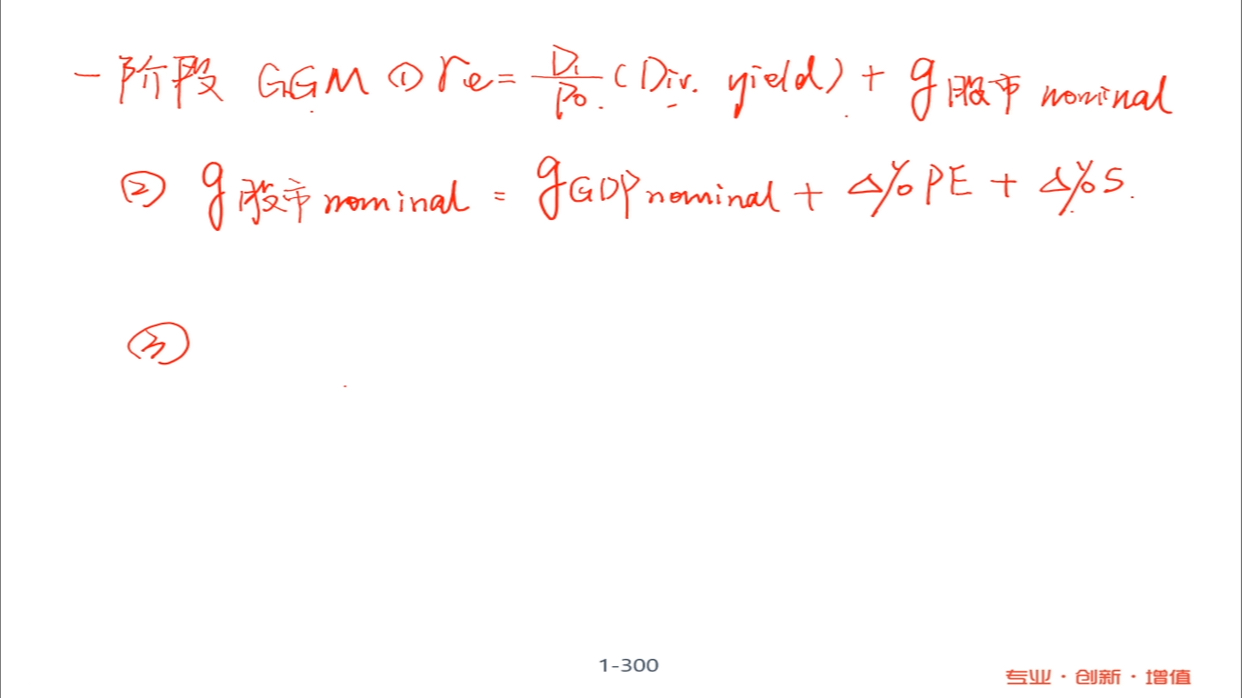 一阶段 GGM ① re = D1/P0 (Div. yield) + g股市 nominal
② g股市 nominal = gGDP nominal + Δ%PE + Δ%S
③
1-300
专业·创新·增值